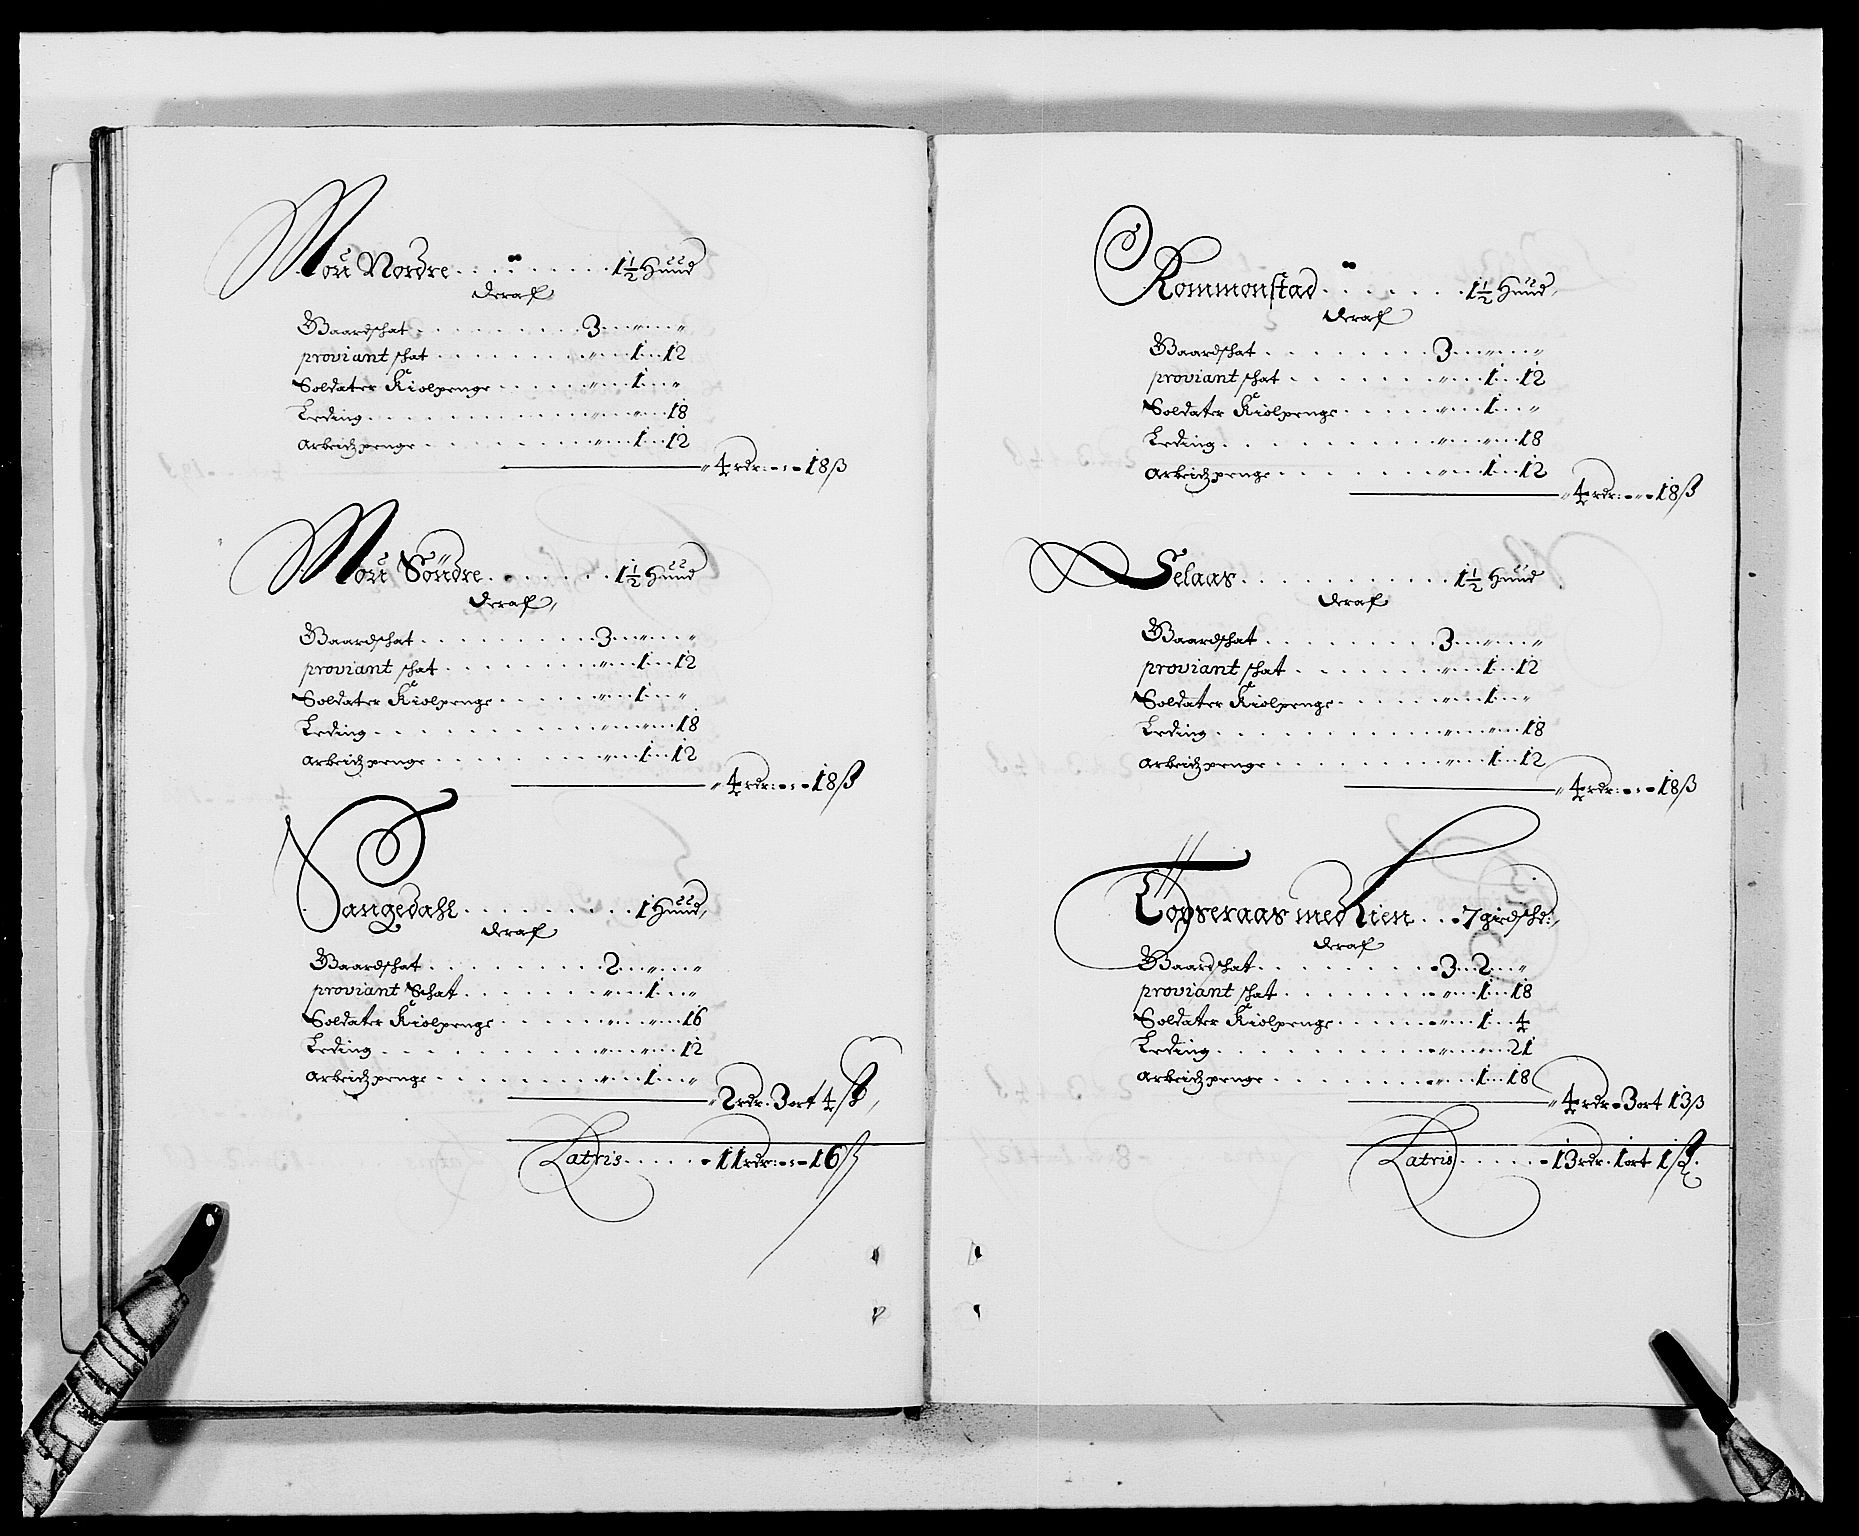 Moÿ Nordre . . . . . . . . . . 1½ Huud
deraf
Gaardschat . . . . . . . . . 3 " "
proviant schat . . . . . . . . " 1 12
Soldater Kiolpenge . . . . . . " 1 "
Leding . . . . . . . . . . . . " " 18
Arbeidzpenge . . . . . . . . . " 1 12
" 4 rdr: - : - 18 β
Moÿ Söndre . . . . . . . . 1½ Huud
deraf
Gaardschat . . . . . . . . . 3 " "
proviant schat . . . . . . . . " 1 12
Soldater Kiolpenge . . . . . . " 1 "
Leding . . . . . . . . . . . . " " 18
Arbeidzpenge . . . . . . . . . " 1 12
" 4 rdr: - : - 18 β
Vangedahl . . . . . . . . . 1 Huud
deraf
Gaardschat . . . . . . . . . 2 " "
proviant Schat . . . . . . . . " 1 "
Soldater Kiolpenge . . . . . . " " 16
Leding . . . . . . . . . . . . " " 12
Arbeidzpenge . . . . . . . . . " 1 "
" 2 rdr. 3 ort 4 β
Latris . . . . . - 11 rdr: - : - 16 β
Rommenstad . . . . . . . 1½ Huud
deraf
Gaardschat . . . . . . . . . 3 " "
proviant schat . . . . . . . . " 1 12
Soldater Kiolpenge . . . . . . " 1 "
Leding . . . . . . . . . . . . " " 18
Arbeidzpenge . . . . . . . . . " 1 12
" 4 rdr: - " - 18 β
Selaas . . . . . . . . . . . 1½ Huud
deraf
Gaardschat . . . . . . . . . 3 " "
proviant schat . . . . . . . . " 1 12
Soldater Kiolpenge . . . . . . " 1 "
Leding . . . . . . . . . . . . " " 18
Arbeidzpenge . . . . . . . . . " 1 12
" 4 rdr: - : - 18 β
Topseraas med Lien . . . 7 girdschd:
deraf
Gaardschat . . . . . . . . . 3 2 "
proviant schat . . . . . . . . " 1 18
Soldater Kiolpenge . . . . . . " 1 4
Leding . . . . . . . . . . . . " " 21
Arbeidzpenge . . . . . . . . . " 1 18
" 4 rdr - 3 ort 13 β
Latris . . . . . - 13 rdr. 1 ort 1 β.